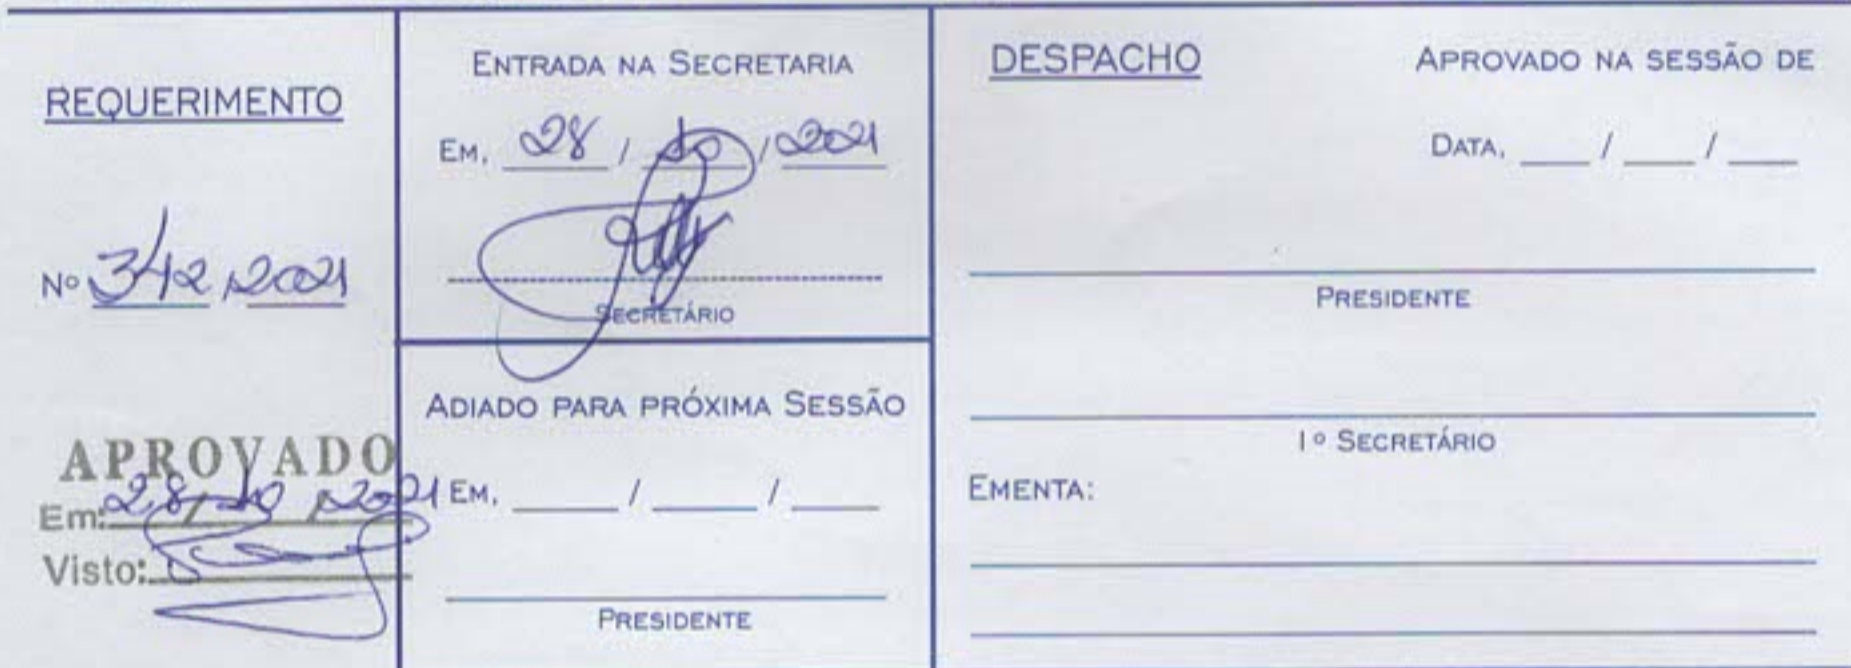 REQUERIMENTO
Nº 342/2021
APROVADO
Em: 28/10/2021
Visto:
ENTRADA NA SECRETARIA
EM, 28/10/2021
SECRETÁRIO
ADIADO PARA PRÓXIMA SESSÃO
EM, ___/___/___
PRESIDENTE
DESPACHO
APROVADO NA SESSÃO DE
DATA, ___/___/___
PRESIDENTE
1º SECRETÁRIO
EMENTA: